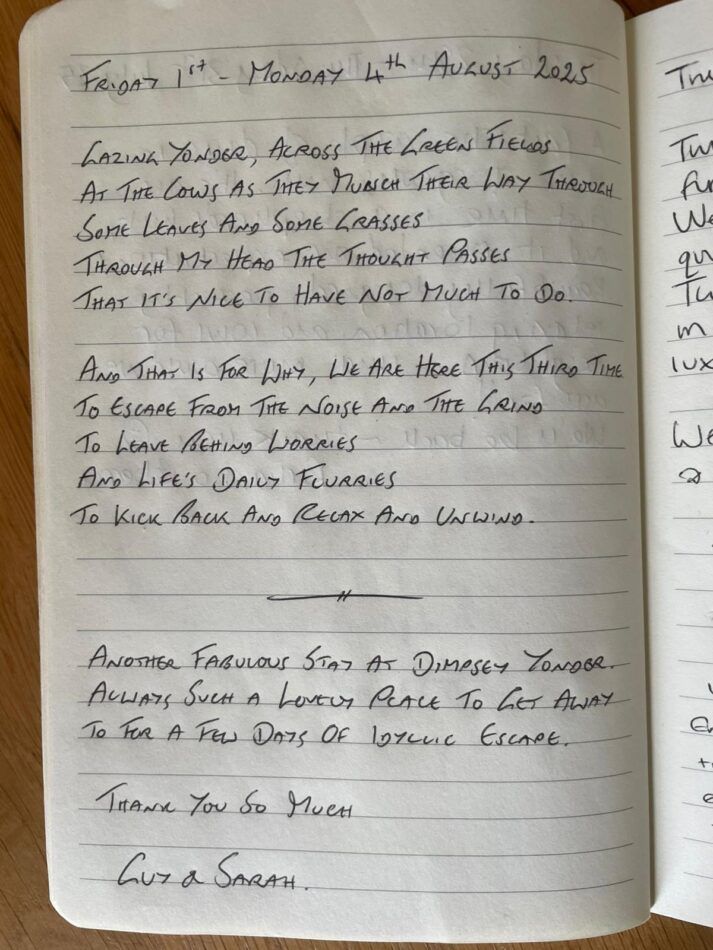 FRIDAY 1st - MONDAY 4th AUGUST 2025
GAZING YONDER, ACROSS THE GREEN FIELDS
AT THE COWS AS THEY MUNCH THEIR WAY THROUGH
SOME LEAVES AND SOME GRASSES
THROUGH MY HEAD THE THOUGHT PASSES
THAT IT'S NICE TO HAVE NOT MUCH TO DO.
AND THAT IS FOR WHY, WE ARE HERE THIS THIRD TIME
TO ESCAPE FROM THE NOISE AND THE GRIND
TO LEAVE BEHIND WORRIES
AND LIFE'S DAILY FLURRIES
TO KICK BACK AND RELAX AND UNWIND.
ANOTHER FABULOUS STAY AT DIMPSEY YONDER.
ALWAYS SUCH A LOVELY PLACE TO GET AWAY
TO FOR A FEW DAYS OF IDYLLIC ESCAPE.
THANK YOU SO MUCH
GUY & SARAH.